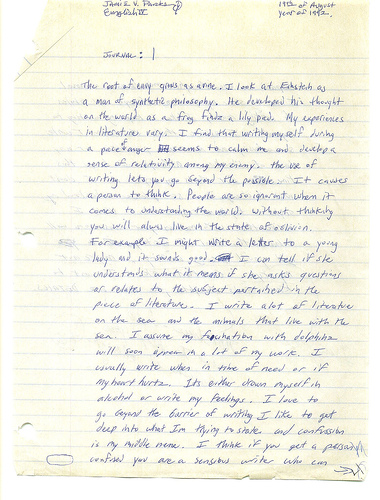 Jamie V.
English II
19th of August
year of 1992.
Journal: 1
The root of envy grows as a vine. I look at Einstein as
a man of synthetic philosophy. He developed his thought
on the world as a frog finds a lily pad. My experiences
in literature vary. I find that writing myself during
a piece of anger seems to calm me and develop a
sense of relativity among my enemy. the use of
writing lets you go beyond the possible. It causes
a person to think. People are so ignorant when it
comes to understanding the world. without thinking
you will always live in the state of oblivion.
For example I might write a letter to a young
lady and it sounds good. I can tell if she
understands what it means if she asks questions
or relates to the subject pertained in the
piece of literature. I write alot of literature
on the sea and the mimals that live with the
sea. I assume my fascination with dolphins
will soon appear in a lot of my work. I
usually write when in time of need or if
my heart hurtz. Its either drown myself in
alcohol or write my feelings. I love to
go beyond the barrier of writing I like to get
deep into what I'm trying to state and confussion
is my middle name. I think if you get a person
confused you are a sensible writer who can